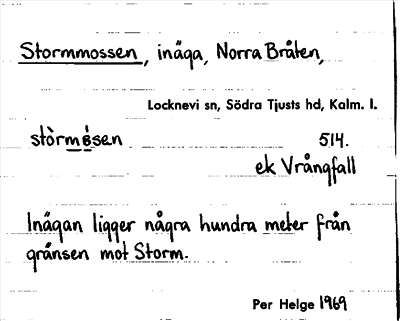 Stormmossen, inäga, Norra Bråten,
Locknevi sn, Södra Tjusts hd, Kalm. l.
514.
ek Vrångfall
Inägan ligger några hundra meter från
gränsen mot Storm.
Per Helge 1969